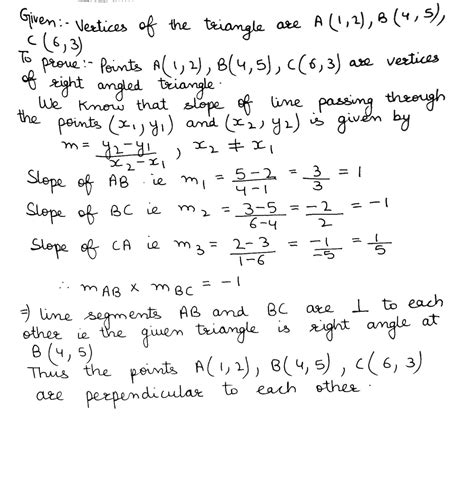 Given:- Vertices of the triangle are A(1,2), B(4,5),
C(6,3)
To prove:- Points A(1,2), B(4,5), C(6,3) are vertices
of right angled triangle.
We know that slope of line passing through
the points (x₁,y₁) and (x₂,y₂) is given by
m = y₂-y₁/x₂-x₁, x₂ ≠ x₁
Slope of AB ie m₁ = 5-2/4-1 = 3/3 = 1
Slope of BC ie m₂ = 3-5/6-4 = -2/2 = -1
Slope of CA ie m₃ = 2-3/1-6 = -1/-5 = 1/5
∴ mAB × mBC = -1
⇒ line segments AB and BC are ⊥ to each
other ie the given triangle is right angle at
B(4,5)
Thus the points A(1,2), B(4,5), C(6,3)
are perpendicular to each other.